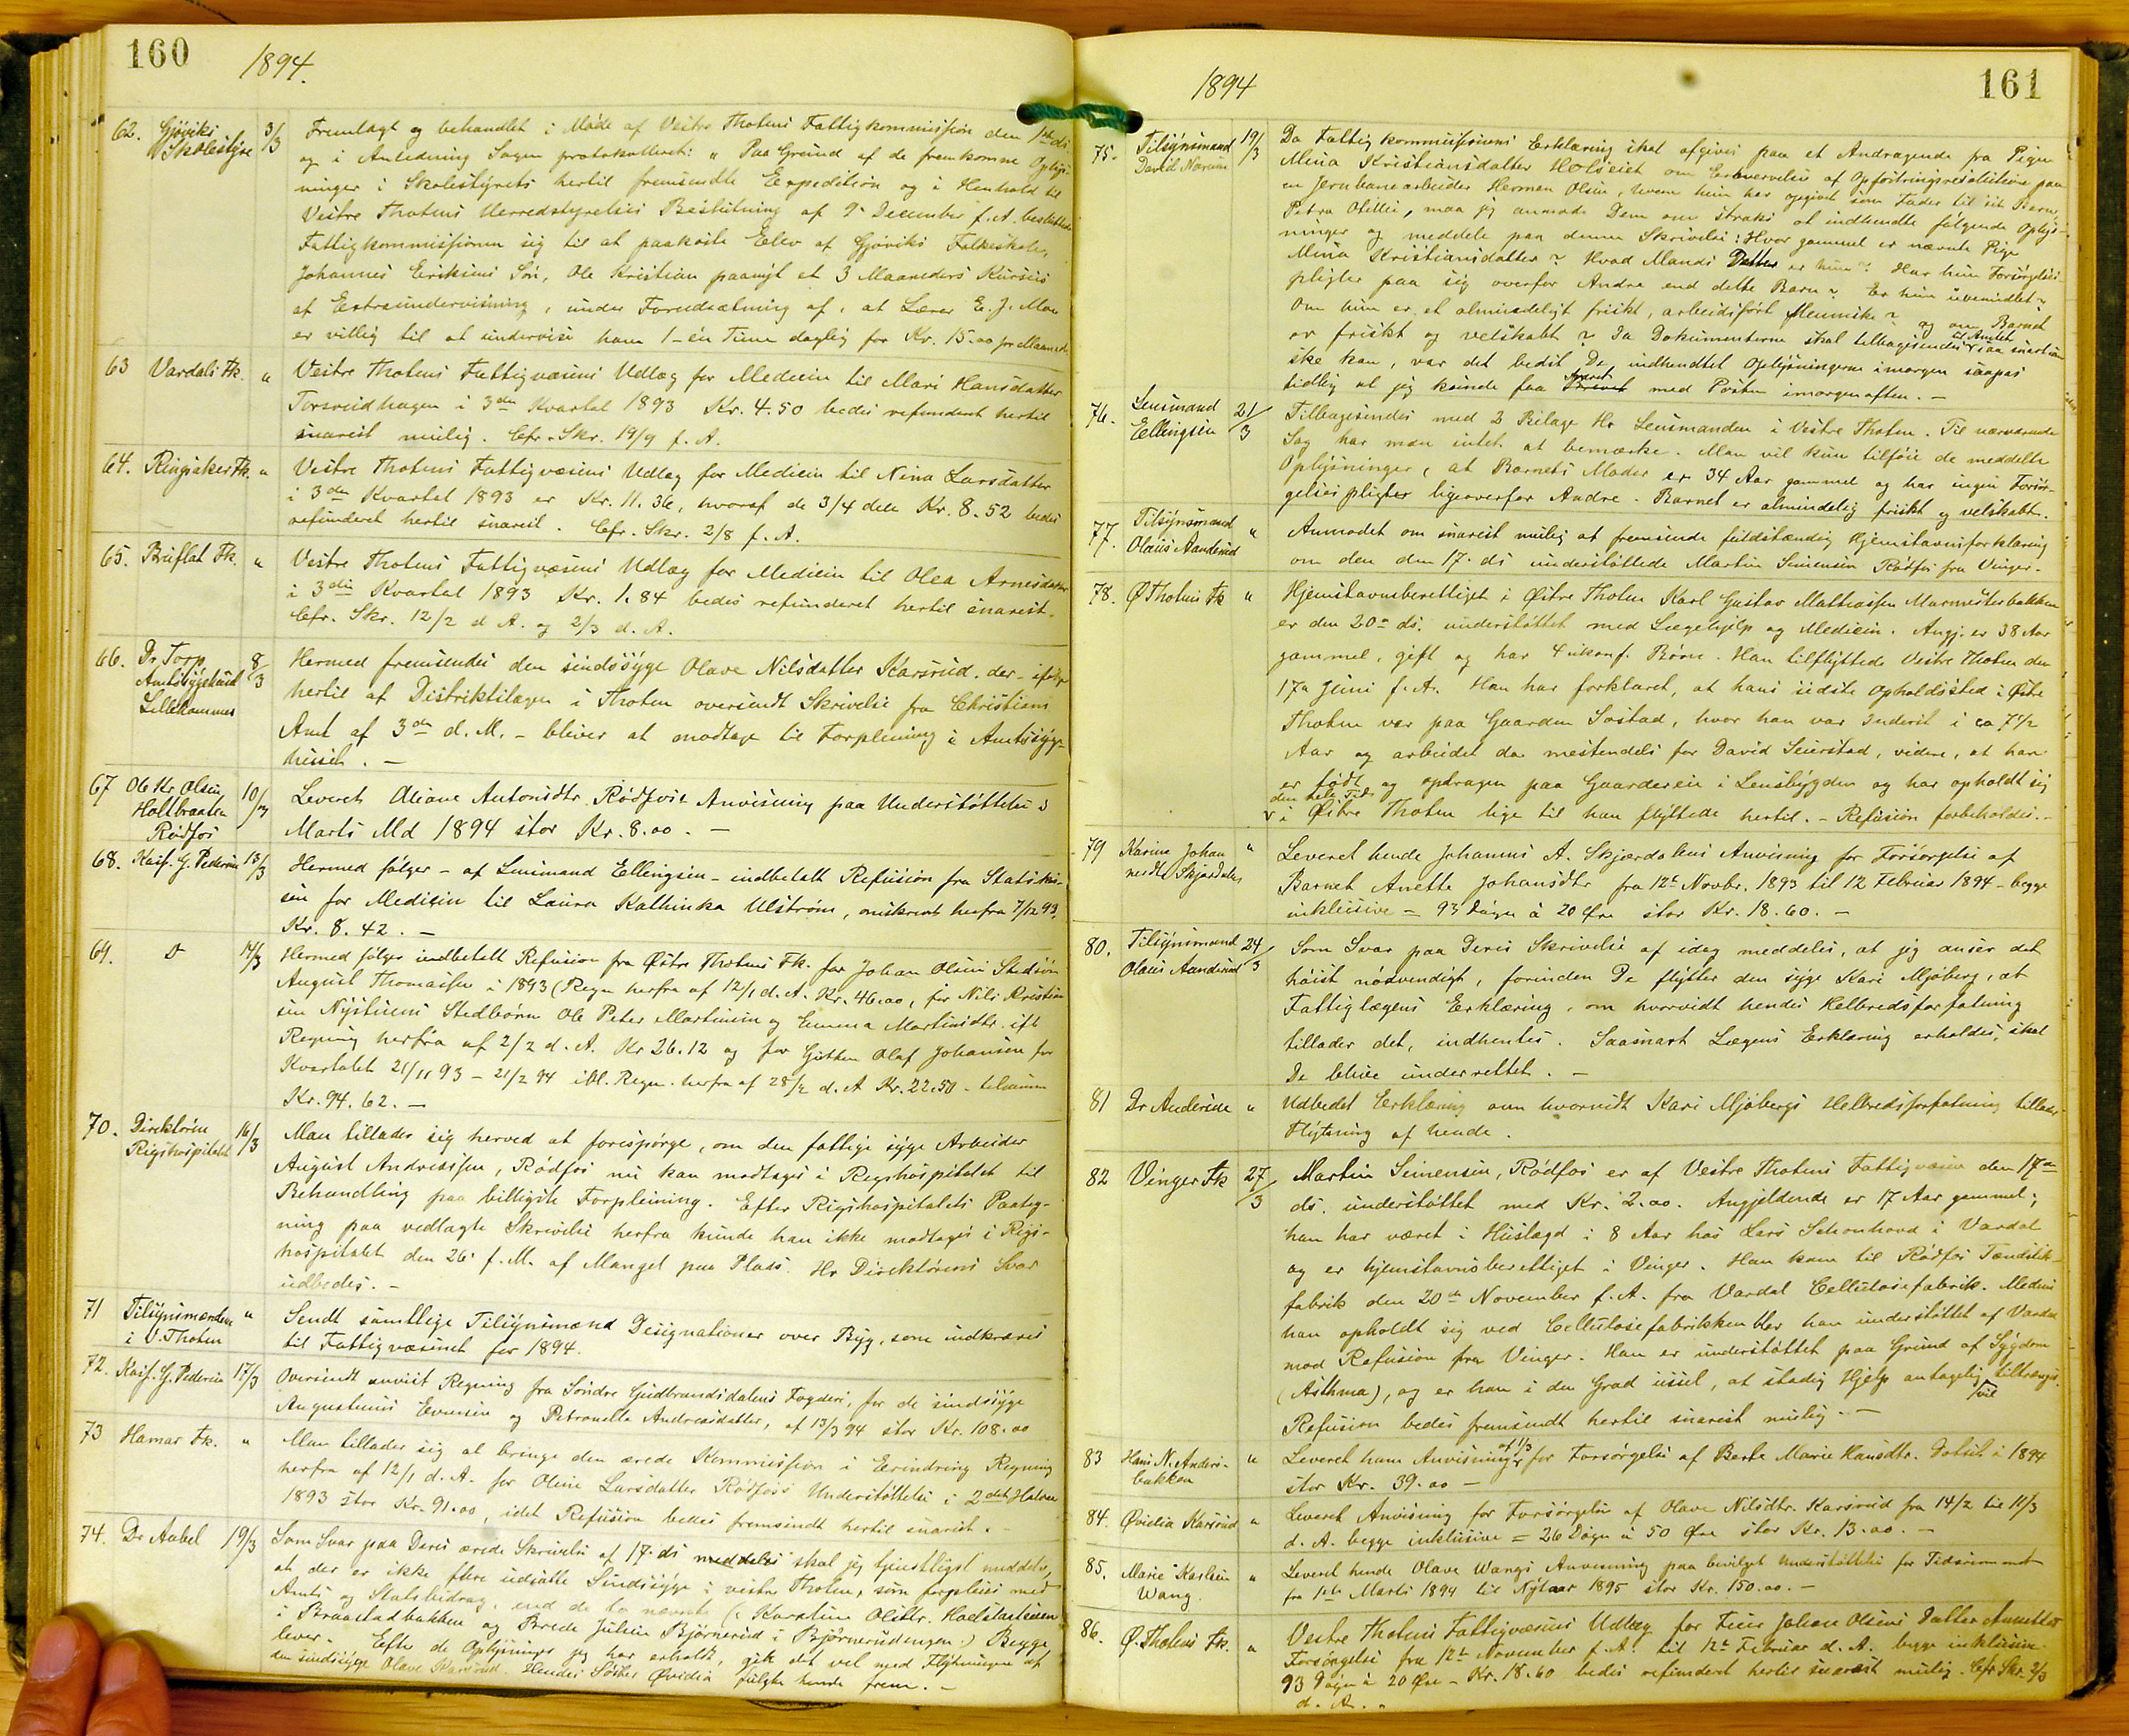 160
1894.
62. Gjøviks Skolestyre 3/3 Fremlagt og behandlet i Møde af Vestre Thotens Fattigkommission den 1ste ds
og i Anledning Sagen protokolleret: "Paa Grund af de fremkomne Oplys-
ninger i Skolestyrets hertil fremsendte Expedition og i Henhold til
Vestre Thotens Herredstyrelses Beslutning af 9. December f. A. besluttede
Fattigkommissionen sig til at paakoste Elev af Gjøviks Folkeskole,
Johannes Eriksens Søn, Ole Kristian paanyt et 3 Maaneders Kursus
af Extraundervisning, under Forudsætning af, at Lærer E. J. Moe
er villig til at undervise ham 1 - én Time daglig for Kr. 15.00 pr Maaned.
63 Vardals Fk. " Vestre Thotens Fattigvæsens Udlæg for Medicin til Mari Hansdatter
Torsveidhagen i 3die Kvartal 1893 Kr. 4.50 bedes refunderet hertil
snarest mulig. Cfr. Skr. 19/9 f. A.
64. Ringsaker Fk. " Vestre Thotens Fattigvæsens Udlæg for Medicin til Nina Larsdatter
i 3die Kvartal 1893 er Kr. 11.36, hvoraf de 3/4 dele Kr. 8.52 bedes
refunderet hertil snarest. Cfr. Skr. 2/8 f. A.
65. Bruflat Fk. " Vestre Thotens Fattigvæsens Udlæg for Medicin til Olea Arnesdatter
i 3die Kvartal 1893 Kr. 1.84 bedes refunderet hertil snarest.
Cfr. Skr. 12/2 d. A. og 2/3 d. A.
66. Dr. Torp Amtssygehuset Lillehammer 8/3 Hermed fremsendes den sindssyge Olave Nilsdatter Karsrud, der - ifølge
hertil af Distriktslægen i Thoten oversendt Skrivelse fra Christians
Amt af 3die d. M. - bliver at modtage til Forpleining i Amtssyge-
huset. -
67 Ole Kr. Olsen Holtbraaten Rødfos 10/3 Leveret Aliane Antonsdtr. Rødfos's Anvisning paa Understøttelse
Marts Md 1894 stor Kr. 8.00. -
68. Kass. G. Pedersen 13/3 Hermed følger - af Lensmand Ellingsen - indbetalt Refusion fra Statskas-
sen for Medicin til Laura Kathinka Ulstrøm, omskrevet herfra 7/12 93.
Kr. 8.42. -
69. D 14/3 Hermed følger indbetalt Refusion fra Østre Thotens Fk. for Johan Olsens Stedsøn
August Thomassen i 1893 (Regn. herfra af 12/1 d. A. Kr. 46.00, for Nils Kristian
sen Nystuens Stedbørn Ole Peter Martinsen og Emma Martinsdtr. ift
Regning herfra af 2/2 d. A. Kr 26.12 og for Gutten Olaf Johansen for
Kvartalet 21/11 93 - 21/2 94 ifl. Regn. herfra af 28/2 d. A Kr. 22.50 - tilsammen
Kr. 94.62. -
70. Direktøren Rigshospitalet 16/3 Man tillader sig herved at forespørge, om den fattige syge Arbeider
August Andreassen, Rødfos nu kan modtages i Rigshospitalet til
Behandling paa billigste Forpleining. Efter Rigshospitalets Paateg-
ning paa vedlagte Skrivelse herfra kunde han ikke modtages i Rigs-
hospitalet den 26. f. M. af Mangel paa Plass. Hr Direktørens Svar
udbedes. -
71 Tilsynsmændene i V. Thoten " Sendt samtlige Tilsynsmænd Designationer over Byg, som indkræves
til Fattigvæsenet for 1894.
72. Kass. G. Pedersen 17/3 Oversendt anvist Regning fra Søndre Gudbrandsdalens Fogderi, for de sindssyge
Augustinus Evensen og Petronella Andreasdatter, af 13/3 94 stor Kr. 108.00
73 Hamar Fk. " Man tillader sig at bringe den ærede Kommission i Erindring Regning
herfra af 12/1 d. A. for Oline Larsdatter Rødfoss Understøttelse i 2det Halvaar
1893 stor Kr. 91.00, idet Refusion bedes fremsendt hertil snarest. -
74. Dr Aabel 19/3 Som Svar paa Deres ærede Skrivelse af 17. ds meddeles skal jeg tjenstligst meddele,
at der er ikke flere udsatte Sindssyge i vestre Thoten, som forpleies med
Amts og Statsbidrag, end de to nævnte (: Karoline Olsdtr.
i Braastadbakken og Brede Julsen Bjørnerud i Bjørnerudengen.) Begge
lever. Efter de Oplysninger jeg har erholdt, gik det vel med Flytningen af
den sindssyge Olave Karsrud. Hendes Søster Øvidia fulgte hende frem. -
161
1894
75. Tilsynsmand David Narum 19/3 Da Fattigkommissionens Erklæring skal afgives paa et Andragende fra Pigen
Mina Kristiansdatter Holseiet om Erhvervelse af Opfostringsresolution paa
en Jernbanearbeider Herman Olsen, hvem hun har opgivet som Fader til sit Barn,
Petra Otillie, maa jeg anmode Dem om straks at indhendte følgende Oplys-
ninger og meddele paa denne Skrivelse: Hvor gammel er nævnte Pige
Mina Kristiansdatter? Hvad Mands Datter er hun? Har hun Forsørgelses-
pligter paa sig overfor Andre end dette Barn? Er hun ubemidlet?
Om hun er et almindeligt friskt, arbeidsført Menneske? og om Barnet
er friskt og velskabt? Da Dokumenterne skal tilbagesendes til Amtet saa snart som
ske kan, var det bedst De indhendtet Oplysningerne imorgen saapas
tidlig at jeg kunde faa Svaret Brevet med Posten imorgen aften. -
76. Lensmand Ellingsen 21/3 Tilbagesendes med 2 Bilage Hr Lensmanden i Vestre Thoten. Til nærværende
Sag har man intet at bemærke. Man vil kun tilføie de meddelte
Oplysninger, at Barnets Moder er 34 Aar gammel og har ingen Forsør-
gelsespligter ligeoverfor Andre. Barnet er almindelig friskt og velskabt.
77. Tilsynsmand Olaus Aanderud " Anmodet om snarest mulig at fremsende fuldstændig Hjemstavnsforklaring
om den den 17. ds understøttede Martin Simensen Rødfos fra Vinger.
78. Ø Thotens Fk " Hjemstavnsberettiget i Østre Thoten Karl Gustav Mathiassen Murmesterbakken
er den 20de ds. understøttet med Lægehjelp og Medicin. Angj. er 38 Aar
gammel, gift og har 4 ukonf. Børn. Han tilflyttede Vestre Thoten den
17de Juni f. A. Han har forklaret, at hans sidste Opholdssted i Østre
Thoten var paa Gaarden Sostad, hvor han var Inderst i ca 7 1/2
Aar og arbeidet da mestendels for David Seierstad, videre, at han
er født og opdragen paa Gaardereie i Lensbygden og har opholdt sig
den hele Tid i Østre Thoten lige til han flyttede hertil. - Refusion forbeholdes. -
79 Karine Johan nesdtr Skjærdalen " Leveret hende Johannes A. Skjærdalens Anvisning for Forsørgelse af
Barnet Anette Johansdtr fra 12te Novbr. 1893 til 12 Februar 1894 - begge
inklusive = 93 Døgn à 20 Øre stor Kr. 18.60. -
80. Tilsynsmand Olaus Aanderud 24/3 Som Svar paa Deres Skrivelse af idag meddeles, at jeg anser det
høist nødvendigt, forinden De flytter den syge Kari Mjøberg, at
Fattiglægens Erklæring, om hvorvidt hendes Helbredsforfatning
tillader det, indhentes. Saasnart Lægens Erklæring erholdes, skal
De blive underrettet. -
81 Dr Andersen " Udbedet Erklæring om hvorvidt Kari Mjøbergs Helbredsforfatning tillader
Flytning af hende.
82 Vinger Fk 27/3 Martin Simensen, Rødfos er af Vestre Thotens Fattigvæsen den 17de
ds. understøttet med Kr. 2.00. Angjeldende er 17 Aar gammel;
han har været i Huslægd i 8 Aar hos Lars Schonhovd i Vardal
og er hjemstavnsberettiget i Vinger. Han kom til Rødfos Tændstik-
fabrik den 20de November f. A. fra Vardal Cellulosefabrik. Medens
han opholdt sig ved Cellulosefabrikken blev han understøttet af Vardal
mod Refusion fra Vinger. Han er understøttet paa Grund af Sygdom
(Asthma), og er han i den Grad ussel, at stadig Hjelp antagelig vil tiltrenges.
Refusion bedes fremsendt hertil snarest mulig. -
83 Hans N. Anders- bakken " Leveret ham Anvisning af 1/3 for Forsørgelse af Berte Marie Hansdtr. i 1894
stor Kr. 39.00 -
84. Øvidia Karsrud " Leveret Anvisning for Forsørgelse af Olave Nilsdtr. Karsrud fra 14/2 til 11/3
d. A. begge inklusive = 26 Døgn à 50 Øre stor Kr. 13.00. -
85. Marie Karlsen Wang. " Leveret hende Olave Wangs Anvisning paa bevilget Understøttelse for Tidsrummet
fra 1ste Marts 1894 til Nytaar 1895 stor Kr. 150.00. -
86. Ø. Thotens Fk. " Vestre Thotens Fattigvæsens Udlæg for Johan Olsens Datter Anettes
Forsørgelse fra 12te November f. A. til 12te Februar d. A. begge inklusive
93 Døgn à 20 Øre - Kr. 18.60 bedes refunderet hertil snarest mulig. Cfr Skr. 2/3
d. A. "